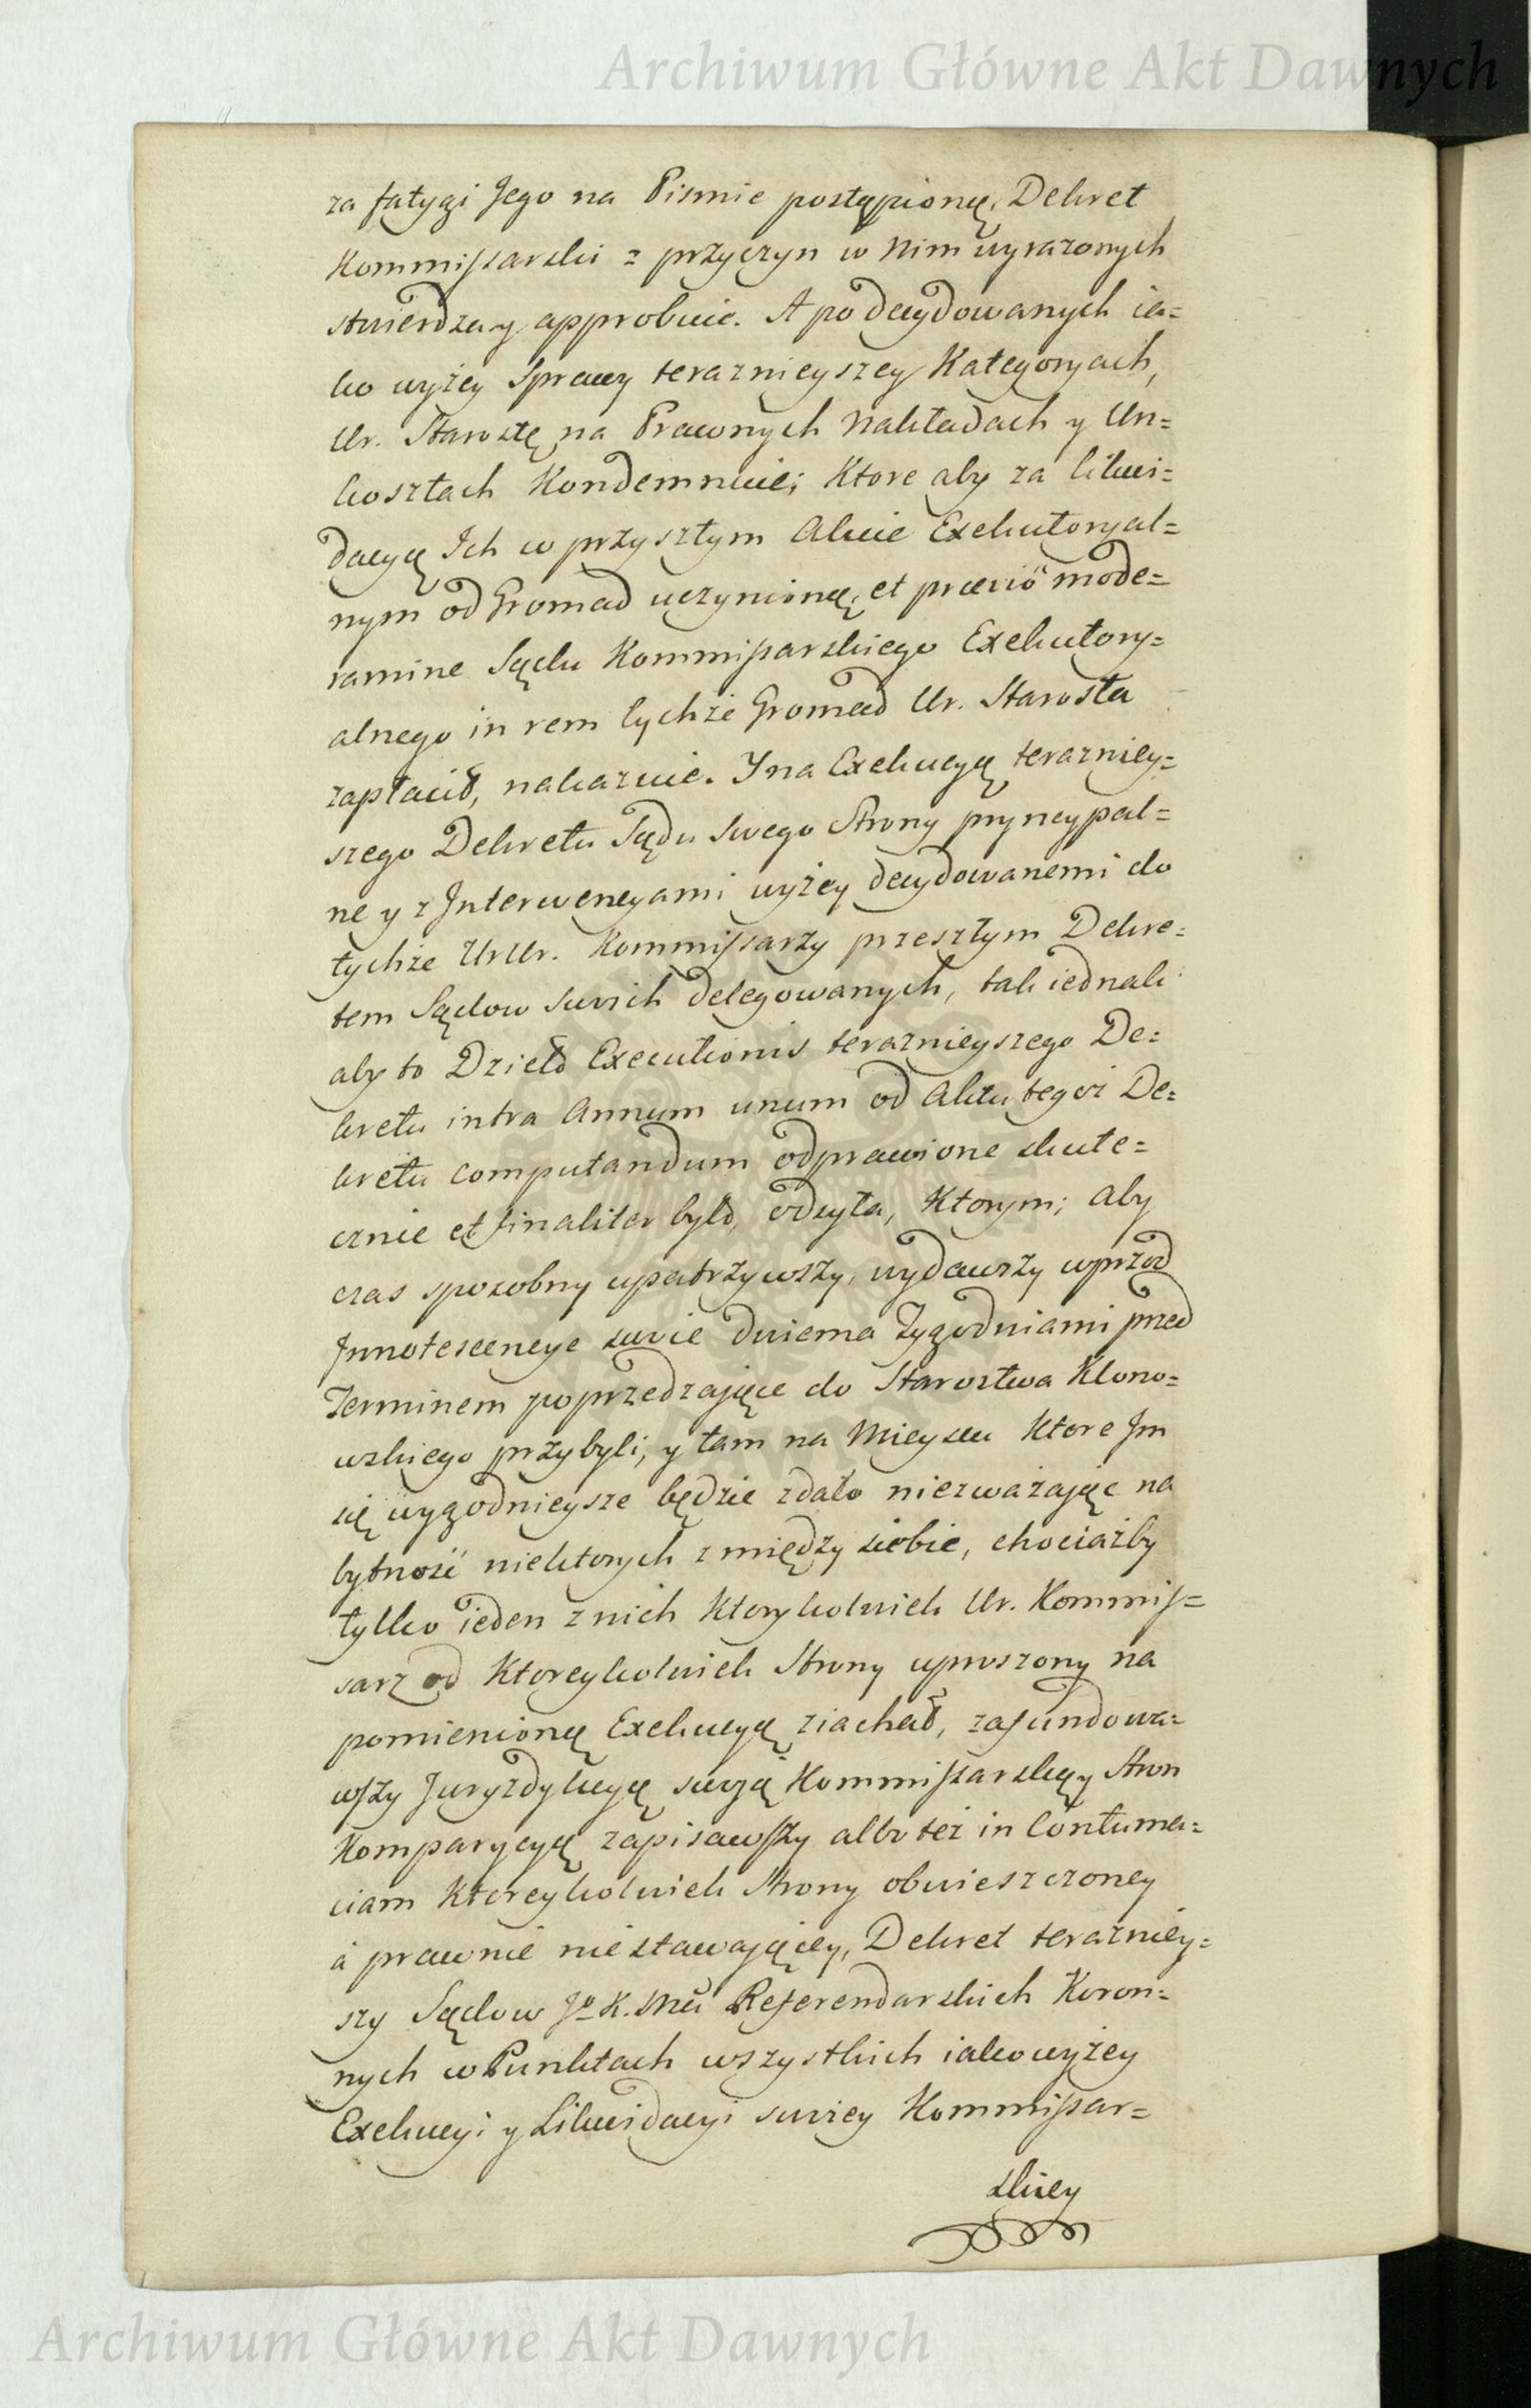 Archiwum Główne Akt Dawnych
za fatygi Jego na Pismie postąpioną, Dekret
Kommissarski z przyczyn w Nim wyrazonych
stwierdza y approbuie. A po decydowanych ia=
ko wyżey Sprawy teraznieyszey Kategoryach,
Ur. Starostę na Prawnych Nakładach y Un=
kosztach Kondemnuie; Ktore aby za likwi=
dacyą Ich w przyszłym Akcie Exekutoryal=
nym od Gromad uczynioną, et praevio mode=
ramine Sądu Kommissarskiego Exekutory=
alnego in rem tychże Gromad Ur. Starosta
zapłacił, nakazuie. Y na Exekucyą terazniey=
szego Dekretu Sądu swego Strony pryncypal=
ne y z Interwencyami wyżey decydowanemi do
tychże UrUr. Kommissarzy przeszłym Dekre=
tem Sądow swoich delegowanych, tak iednak
aby to Dzieło Executionis teraznieyszego De=
kretu intra Annum unum od Aktu tegoż De=
kretu computandum odprawione skute=
cznie et finaliter było, odsyła, Ktorym; aby
czas sposobny upatrzywszy, wydawszy wprzod
Innotescencye swoie dwiema Tygodniami przed
Terminem poprzedzające do Starostwa Klono=
wskiego przybyli, y tam na Mieyscu Ktore Im
się wygodnieysze będzie zdało niezważając na
bytność niektorych z między siebie, chociażby
tylko ieden z nich Ktorykolwiek Ur. Kommis=
sarz od Ktoreykolwiek Strony uproszony na
pomienioną Exekucyą ziachał, zafundowa=
wszy Juryzdykcyą swoją Kommissarską y Stron
Komparycyą zapisawszy albo też in Contuma=
ciam Ktoreykolwiek Strony obwieszczoney
à prawnie niestawającey, Dekret teraznie​y=
szy Sądow Jo K. Mci Referendarskich Koron=
nych w Punktach wszystkich iako wyżey
Exekucyi y Likwidacyi swoiey Kommissar=
skiey
Archiwum Główne Akt Dawnych